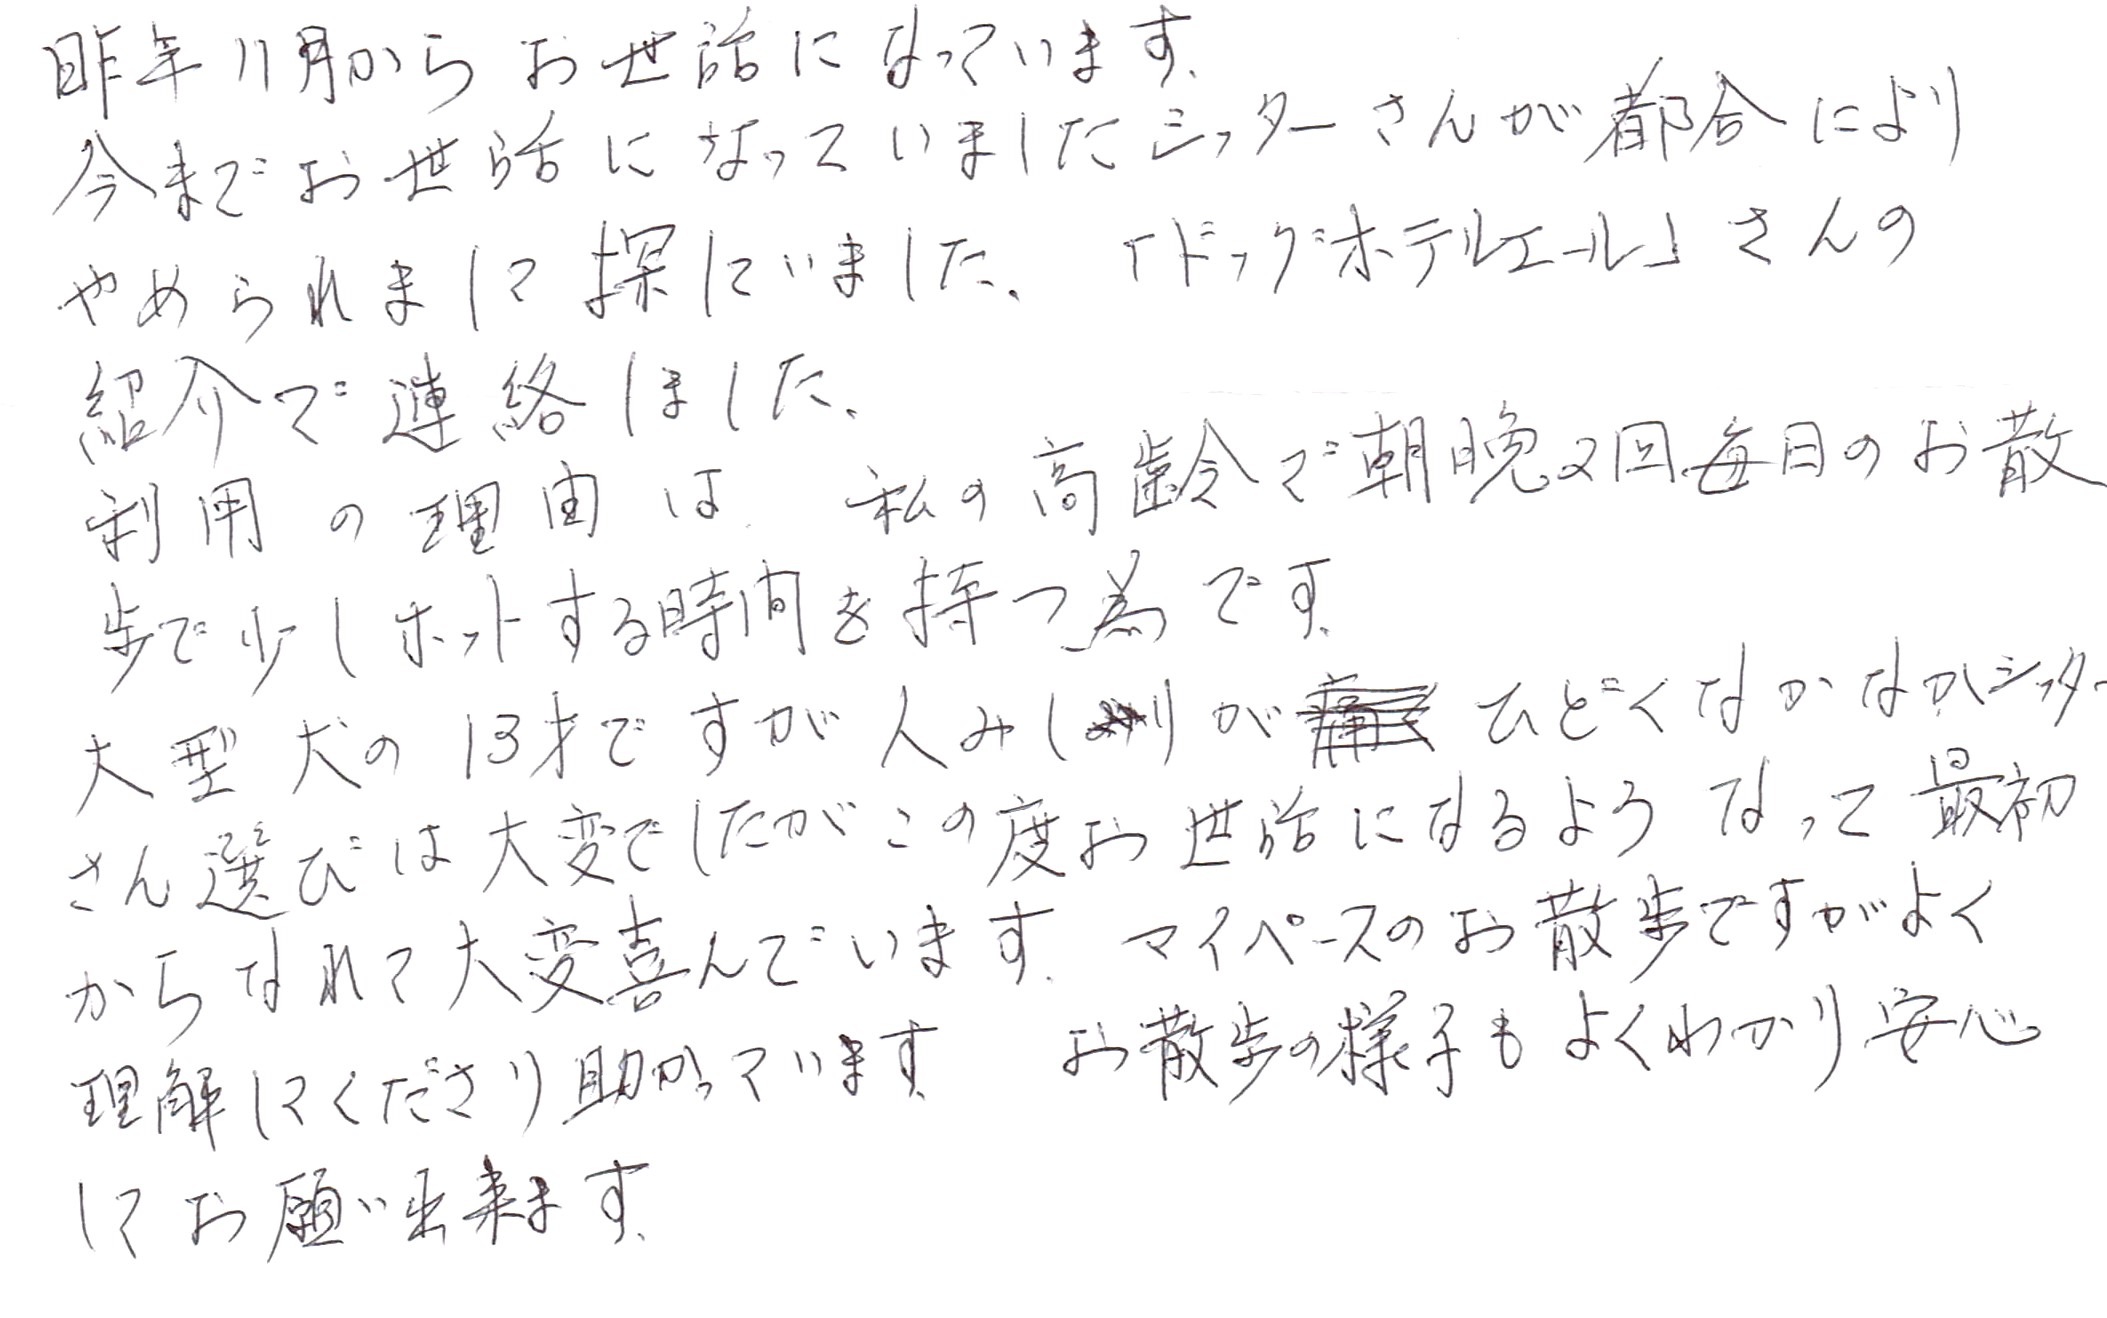 昨年11月からお世話になっています。
今までお世話になっていましたシッターさんが都合により
やめられまして探していました。「ドッグホテルエール」さんの
紹介で連絡しました。
利用の理由は、私の高齢で朝晩2回毎日のお散
歩で少しホットする時間を持つ為です。
大型犬の13才ですが人みしりがひどくなかなかシッター
さん選びは大変でしたがこの度お世話になるようなって最初
からなれて大変喜んでいます。マイペースのお散歩ですがよく
理解してくださり助かっています。お散歩の様子もよくわかり安心
してお願い出来ます。